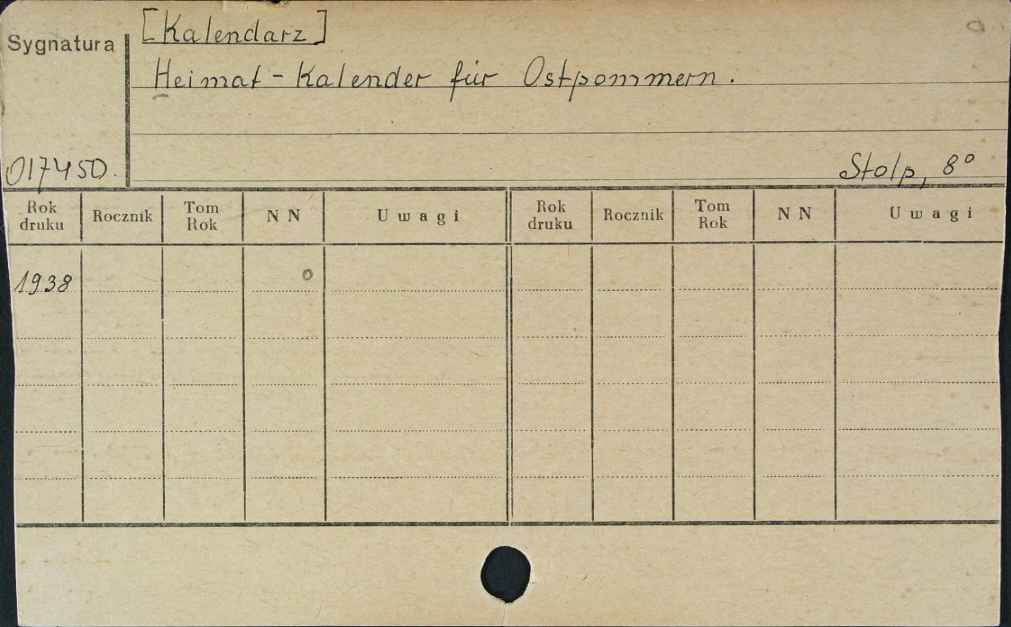 [Kalendarz]
Sygnatura
Heimat-Kalender für Ostpommern.
017450.
Stolp, 8°
Rok druku Rocznik Tom Rok N N Uwagi Rok druku Rocznik Tom Rok N N Uwagi
1938